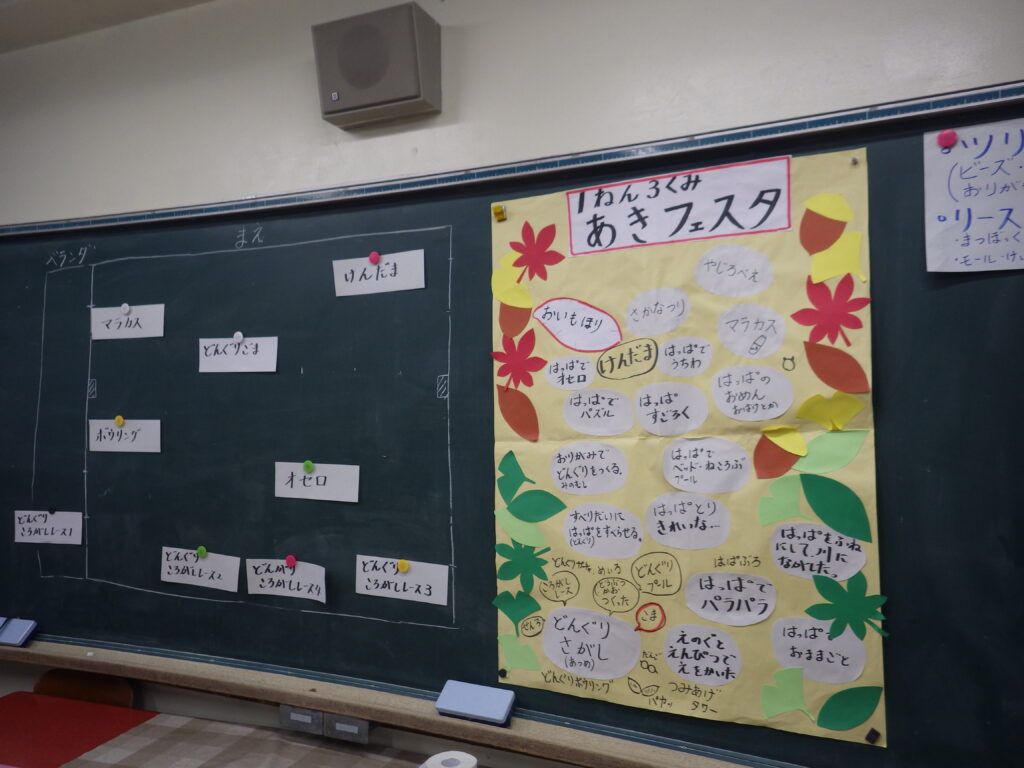 ベランダ
まえ
けんだま
マラカス
どんぐりごま
ボウリング
オセロ
どんぐり
ころがしレース1
どんぐり
ころがしレース2
どんぐり
ころがしレース4
どんぐり
ころがしレース3
1ねん3くみ
あきフェスタ
やじろべえ
おいもほり
さかなつり
マラカス
はっぱで
オセロ
けんだま
はっぱで
うちわ
はっぱで
パズル
はっぱ
すごろく
はっぱの
おめん
おりがみで
どんぐりをつくる。
みのむし
はっぱで
ベッド・ねころぶ
プール
すべりだいに
はっぱをすべらせる。
(どんぐり)
はっぱとり
きれいな…
はっぱをふね
にして、川に
ながした。
ころがし
レース
めいろ
どんぐり
プール
はっぱぶろ
はっぱで
パラパラ
こま
どんぐり
さがし
(あつめ)
えのぐと
えんぴつで
えをかいた
はっぱで
おままごと
どんぐりボウリング
つみあげ
タワー
(ビーズ・
おりが
リース
・まつぼっく
・モール・けい